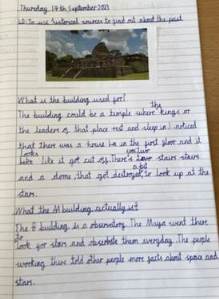 Thursday, 14th September 2023
LO: To use historical sources to find out about the past
What is the building used for?
the
The building could be a temple where kings or
the leaders of that place rest and sleep in. I noticed
that there was a house in the first floor and it
looks
like it got cut off. There's stairs
and a dome that got destroyed to look up at the
stars.
What the building actually is?
The building is a observatory. The Maya went there
to
look for stars and them everyday. The people
working there told other people more facts about space and
stars.